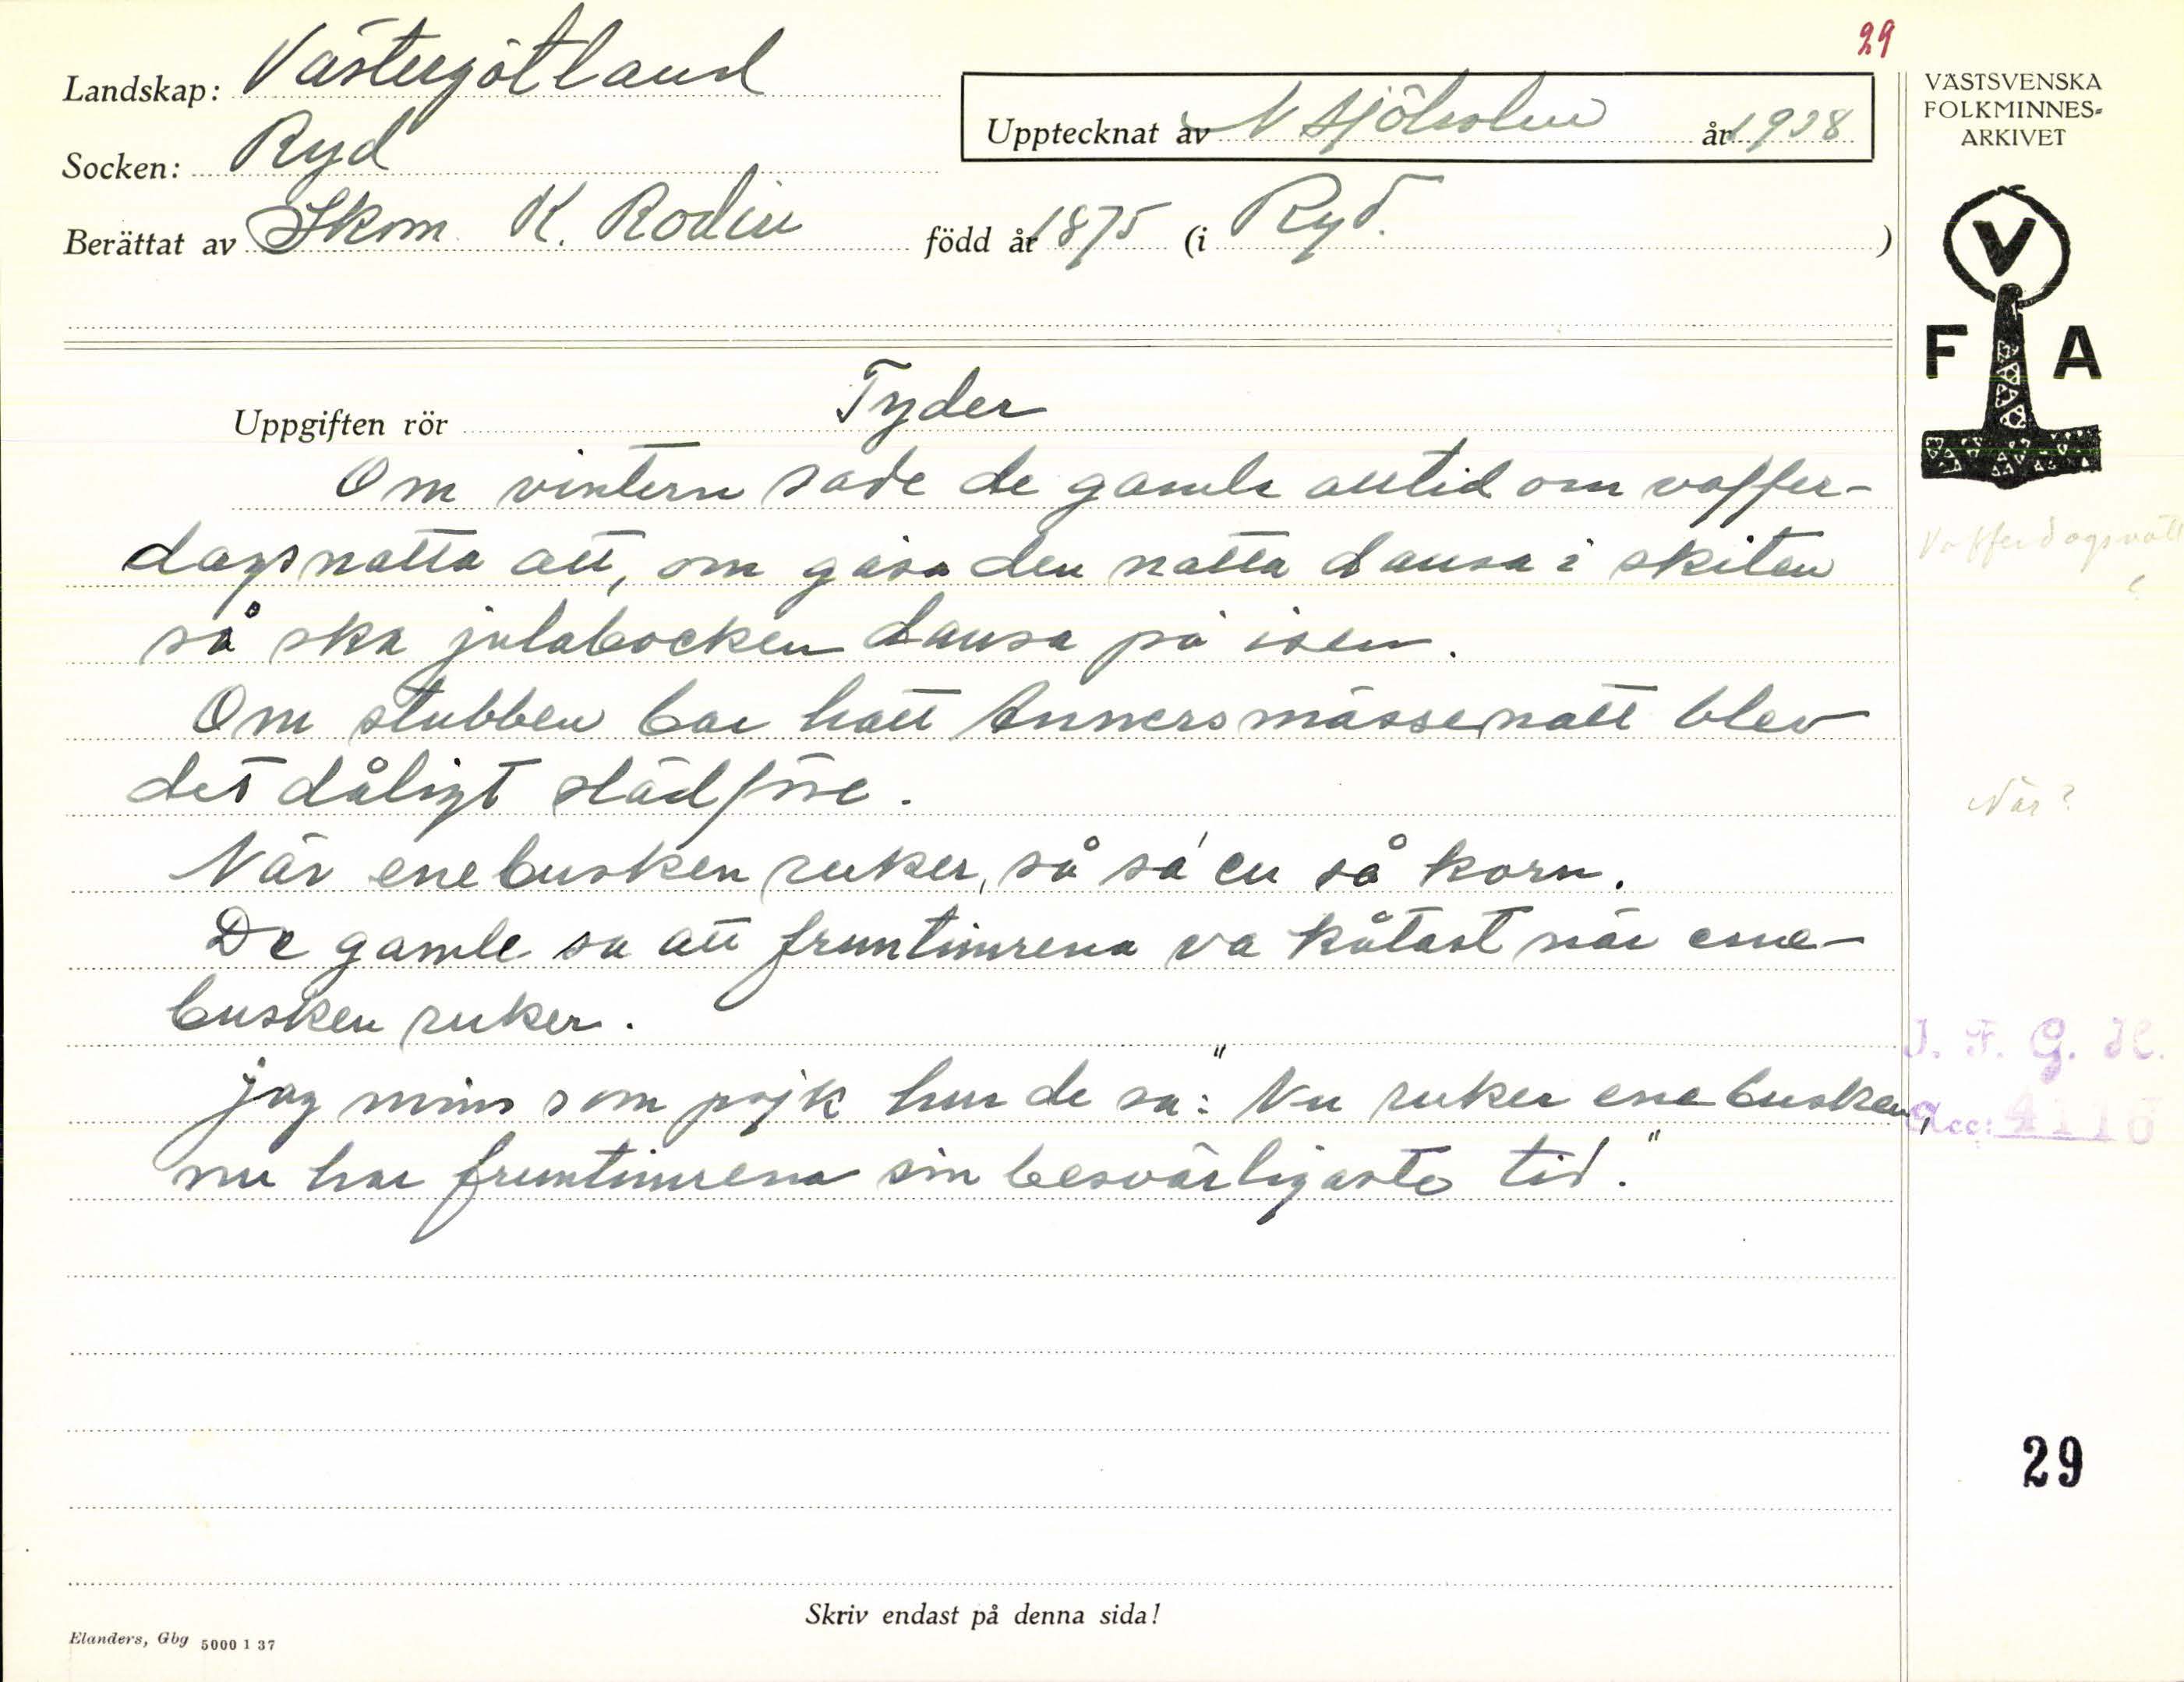 29
Landskap: Västergötland
Socken: Ryd
Berättat av Skom K. Rodin född år 1875 (i Ryd. )
Upptecknat av N Sjöholm år 1938
VÄSTSVENSKA
FOLKMINNES=
ARKIVET
V
F A
Uppgiften rör Tyder
Om vintern sade de gamle alltid om vaffer-
dagsnatta att, om gåsa den natta dansa i skiten
så ska julabocken dansa på isen.
Om stubben bar hatt Annersmässenatt blev
det dåligt slädföre.
När enebusken ruker, så så' en så korn.
De gamle sa att fruntimrena va kåtast när ene-
busken ruker.
jag mins som pojk hur de sa: "Nu ruker enebusken,
nu har fruntimrena sin besvärligaste tid."
Vafferdagsnatt
?
När?
I. F. G. H.
Acc: 4116
29
Skriv endast på denna sida!
Elanders, Gbg 5000 1 37